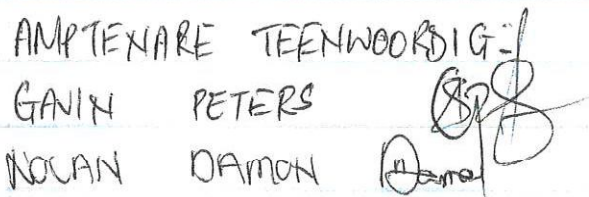 AMPTENARE TEENWOORDIG:
GAVIN PETERS
NOLAN DAMON Damon